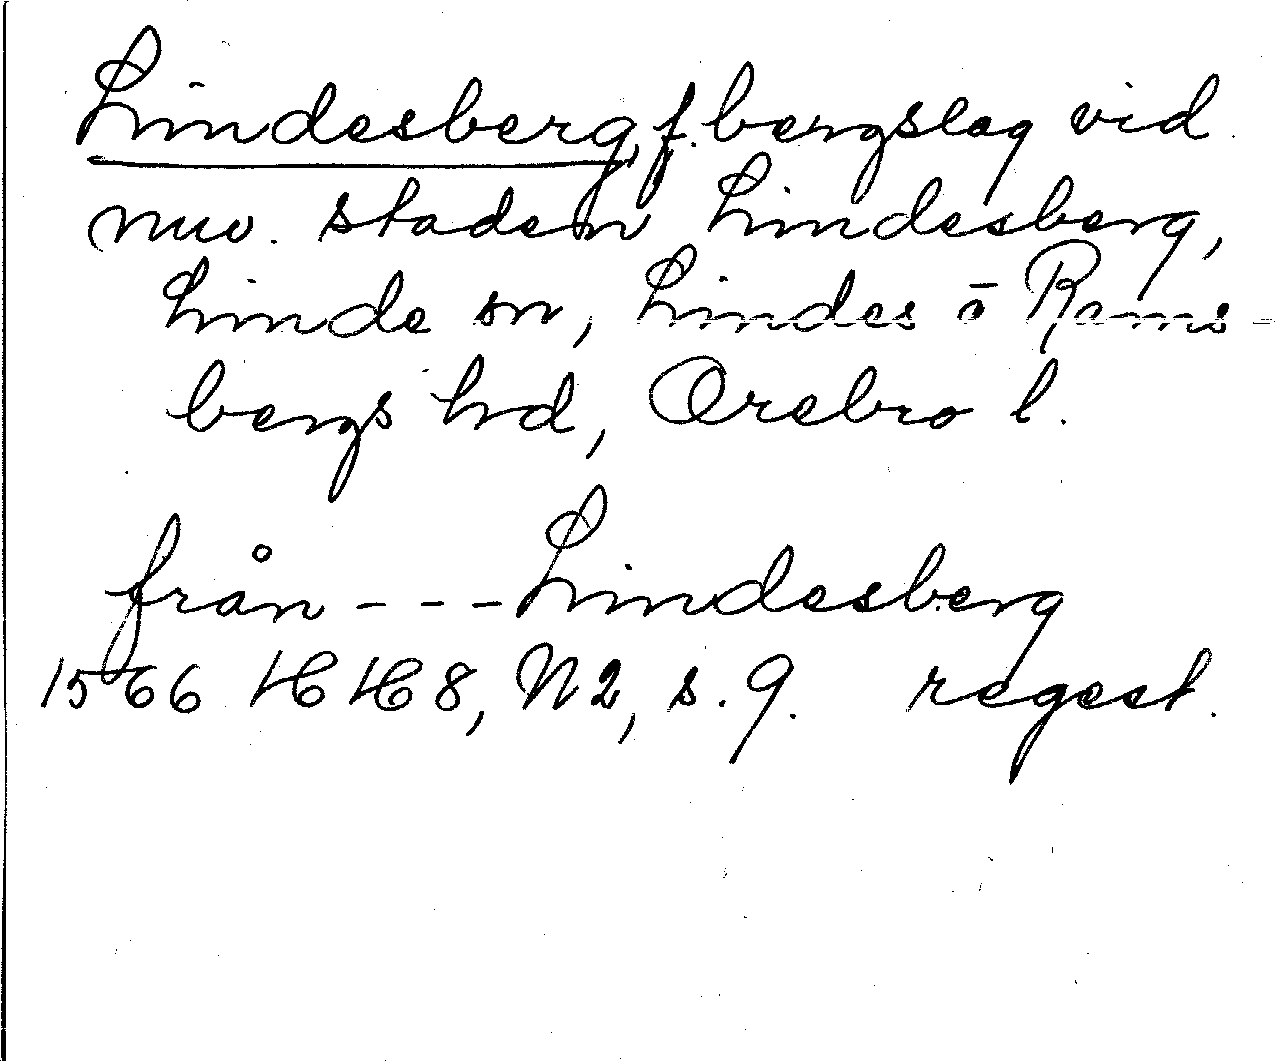 Lindesberg, f. bergslag vid
nuv. staden Lindesberg,
Linde sn, Lindes o Rams-
bergs hd, Örebro l.
från --- Lindesberg
1566 HH 8, N2, s. 9. regest.